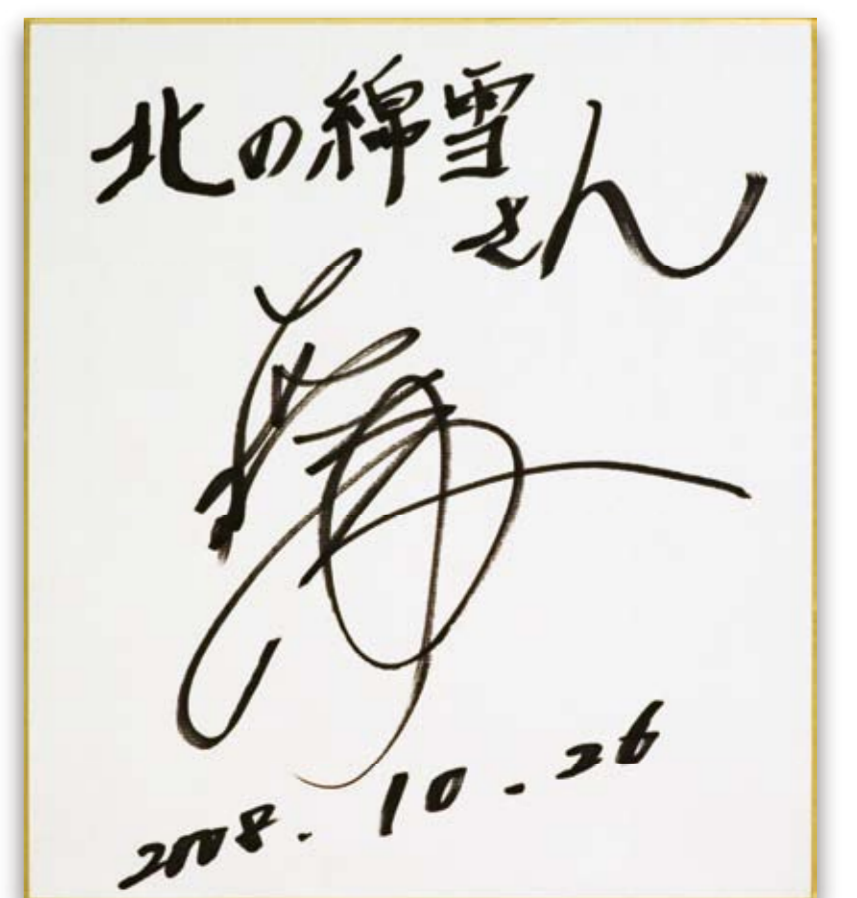 北の綿雪
さん
2008.10.26